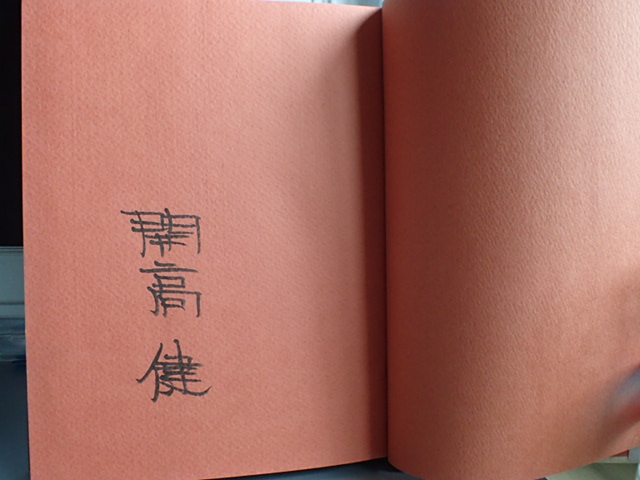 開高健